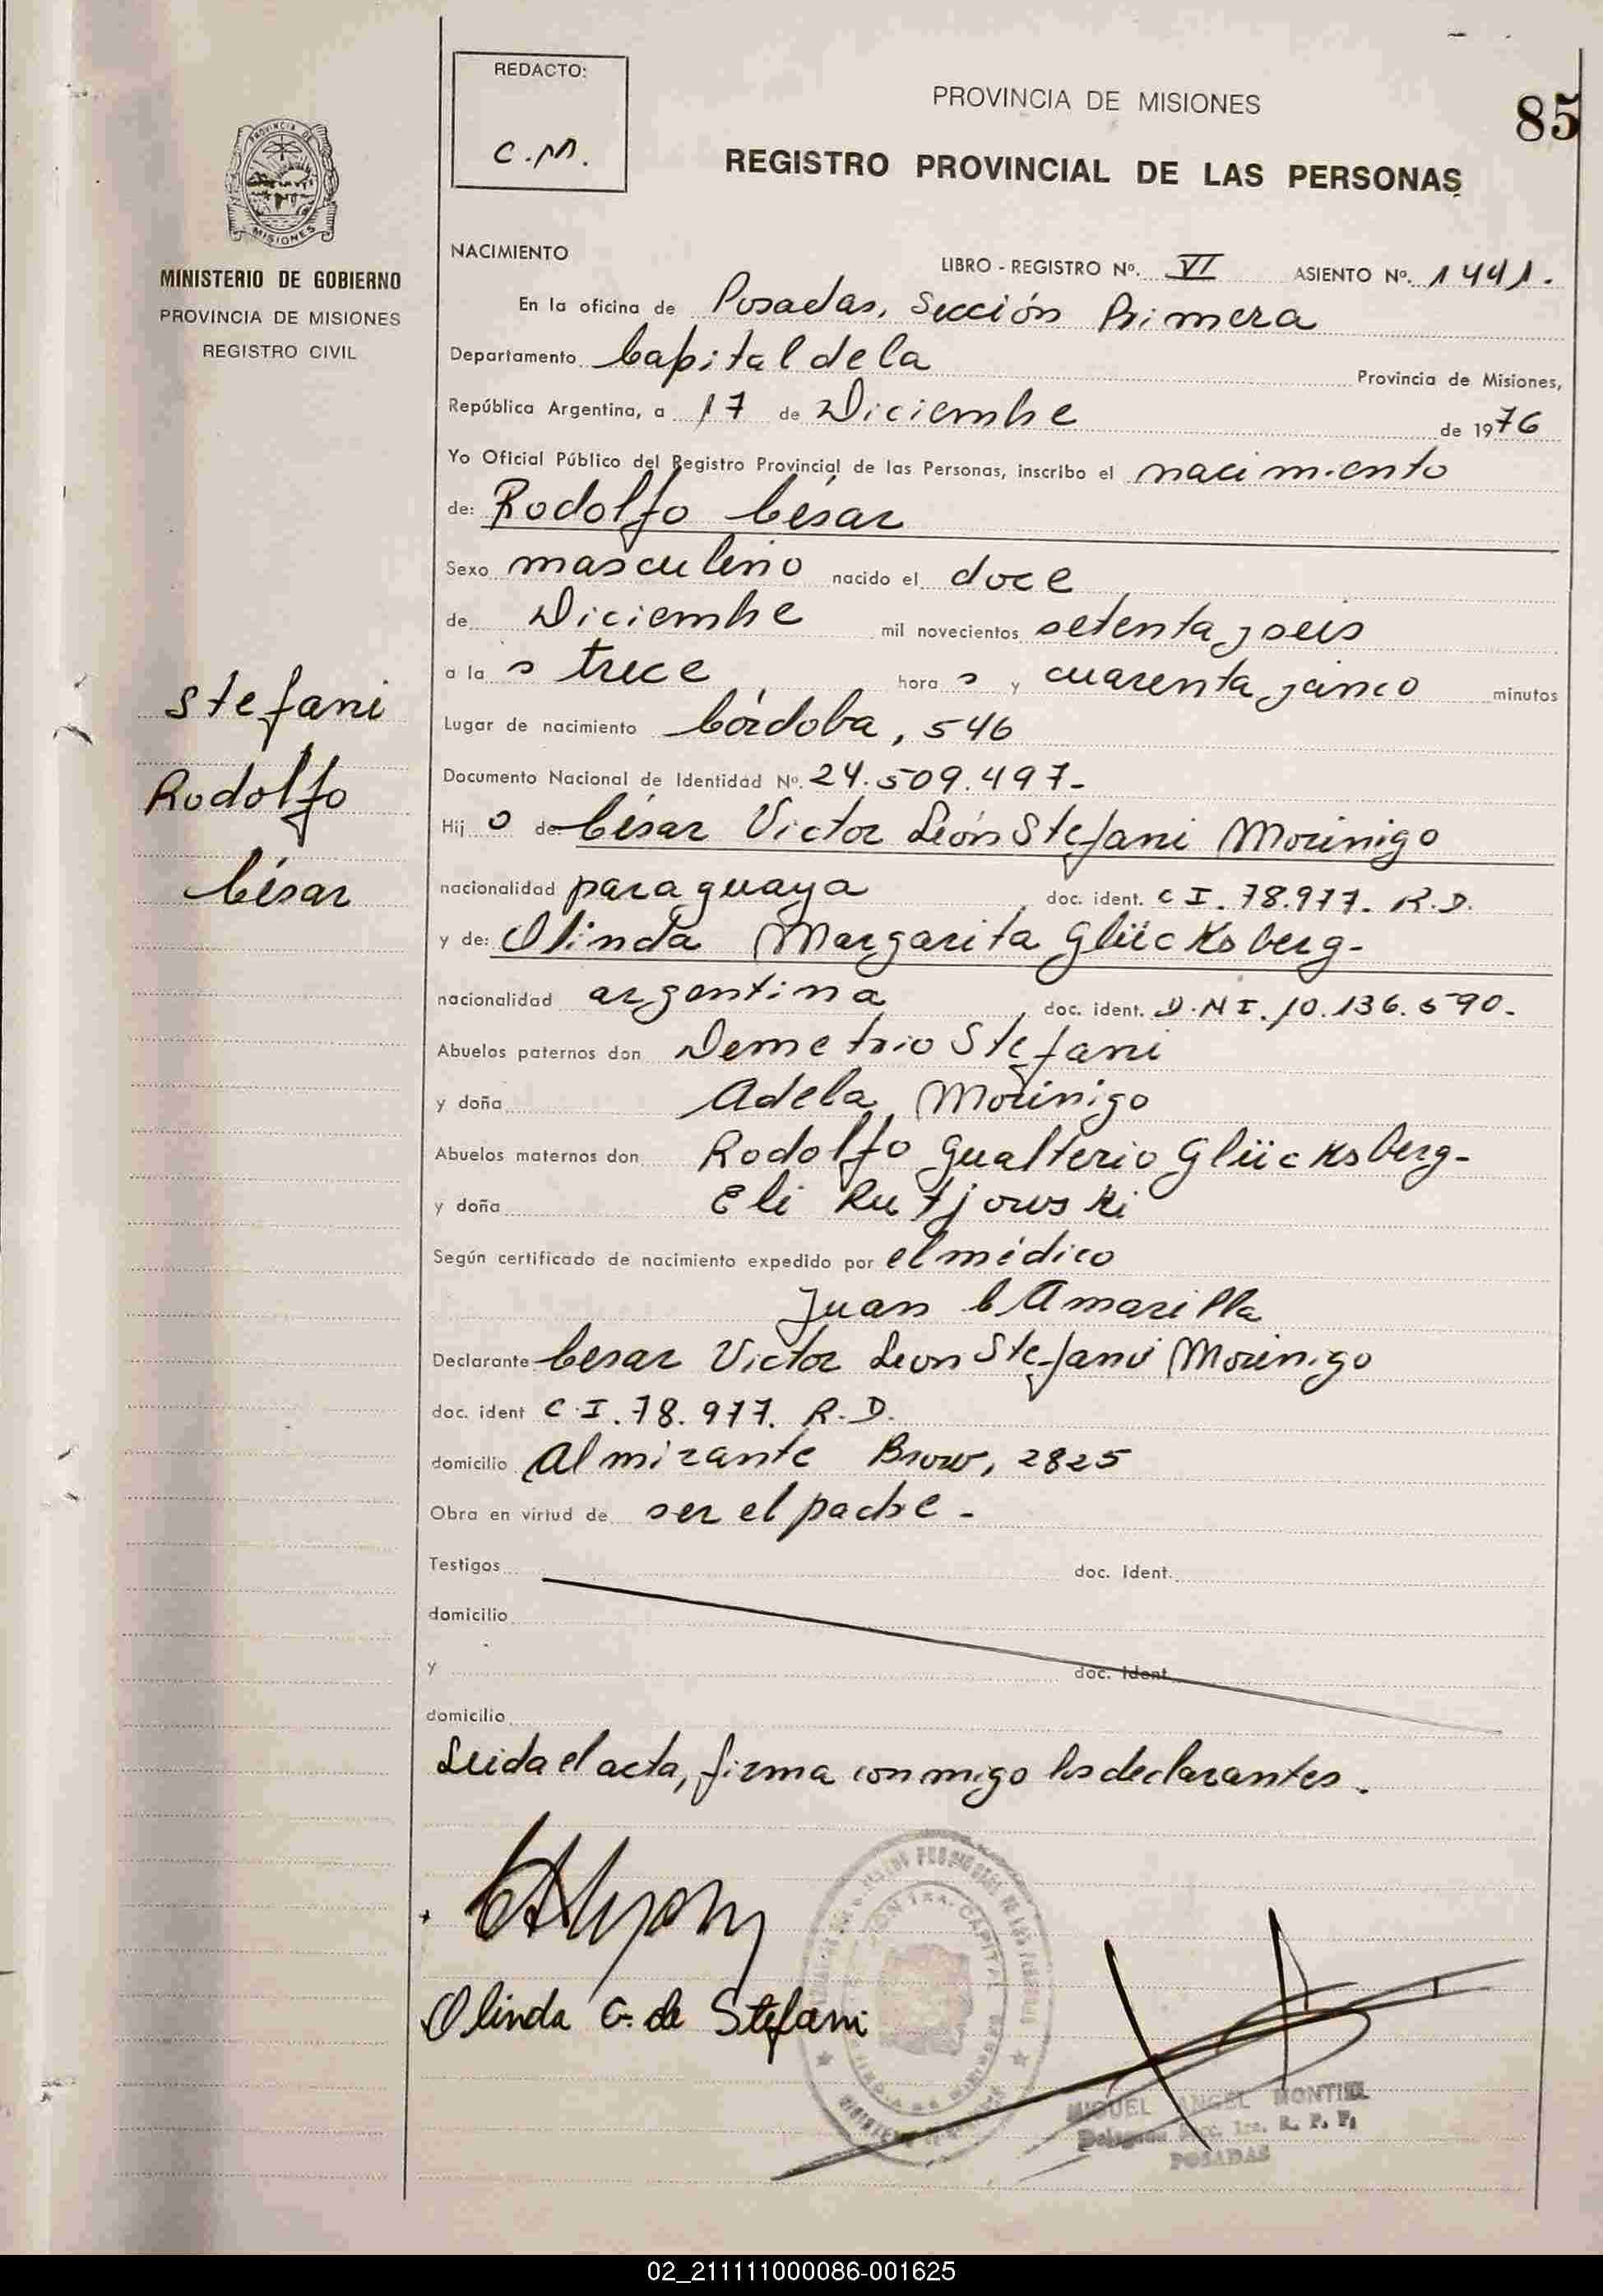 REDACTO:
C.M.
PROVINCIA DE MISIONES
85
REGISTRO PROVINCIAL DE LAS PERSONAS
PROVINCIA DE
MISIONES
MINISTERIO DE GOBIERNO
PROVINCIA DE MISIONES
REGISTRO CIVIL
NACIMIENTO
LIBRO - REGISTRO Nº. VI ASIENTO Nº. 1441.
En la oficina de Posadas, Sección Primera
Departamento Capital de la Provincia de Misiones,
República Argentina, a 17 de Diciembre de 1976
Yo Oficial Público del Registro Provincial de las Personas, inscribo el nacimiento
de: Rodolfo César
Sexo masculino nacido el doce
de Diciembre mil novecientos setenta y seis
a la s trece hora s y cuarenta y cinco minutos
Stefani
Rodolfo
César
Lugar de nacimiento Córdoba, 546
Documento Nacional de Identidad Nº. 24.509.497-
Hij o de César Victor León Stefani Morinigo
nacionalidad paraguaya doc. ident. C I. 78.977. R.D.
y de: Olinda Margarita Glücksberg-
nacionalidad argentina doc. ident. D.N I. 10.136.590.
Abuelos paternos don Demetrio Stefani
y doña Adela Morinigo
Abuelos maternos don Rodolfo Gualterio Glücksberg-
y doña Eli Rutjowski
Según certificado de nacimiento expedido por el médico
Juan C Amarilla
Declarante Cesar Victor Leon Stefani Morinigo
doc. ident C.I. 78.977. R.D.
domicilio Almirante Brow, 2825
Obra en virtud de ser el padre -
Testigos doc. Ident.
domicilio
y doc. Ident
domicilio
Leida el acta, firma conmigo los declarantes.
Olinda G. de Stefani
MIGUEL ANGEL MONTIEL
Secc. 1ra. R. P. P.
POSADAS
02_211111000086-001625